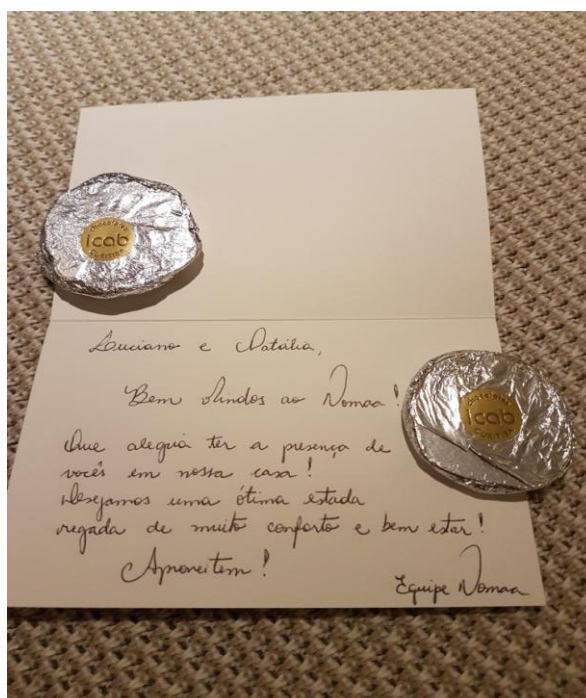 chocolates
icab
CURITIBA
Luciano e Natália,
Bem Vindos ao Nomaa!
chocolates
icab
CURITIBA
Que alegria ter a presença de
vocês em nossa casa!
Desejamos uma ótima estada
regada de muito conforto e bem estar!
Aproveitem!
Equipe Nomaa